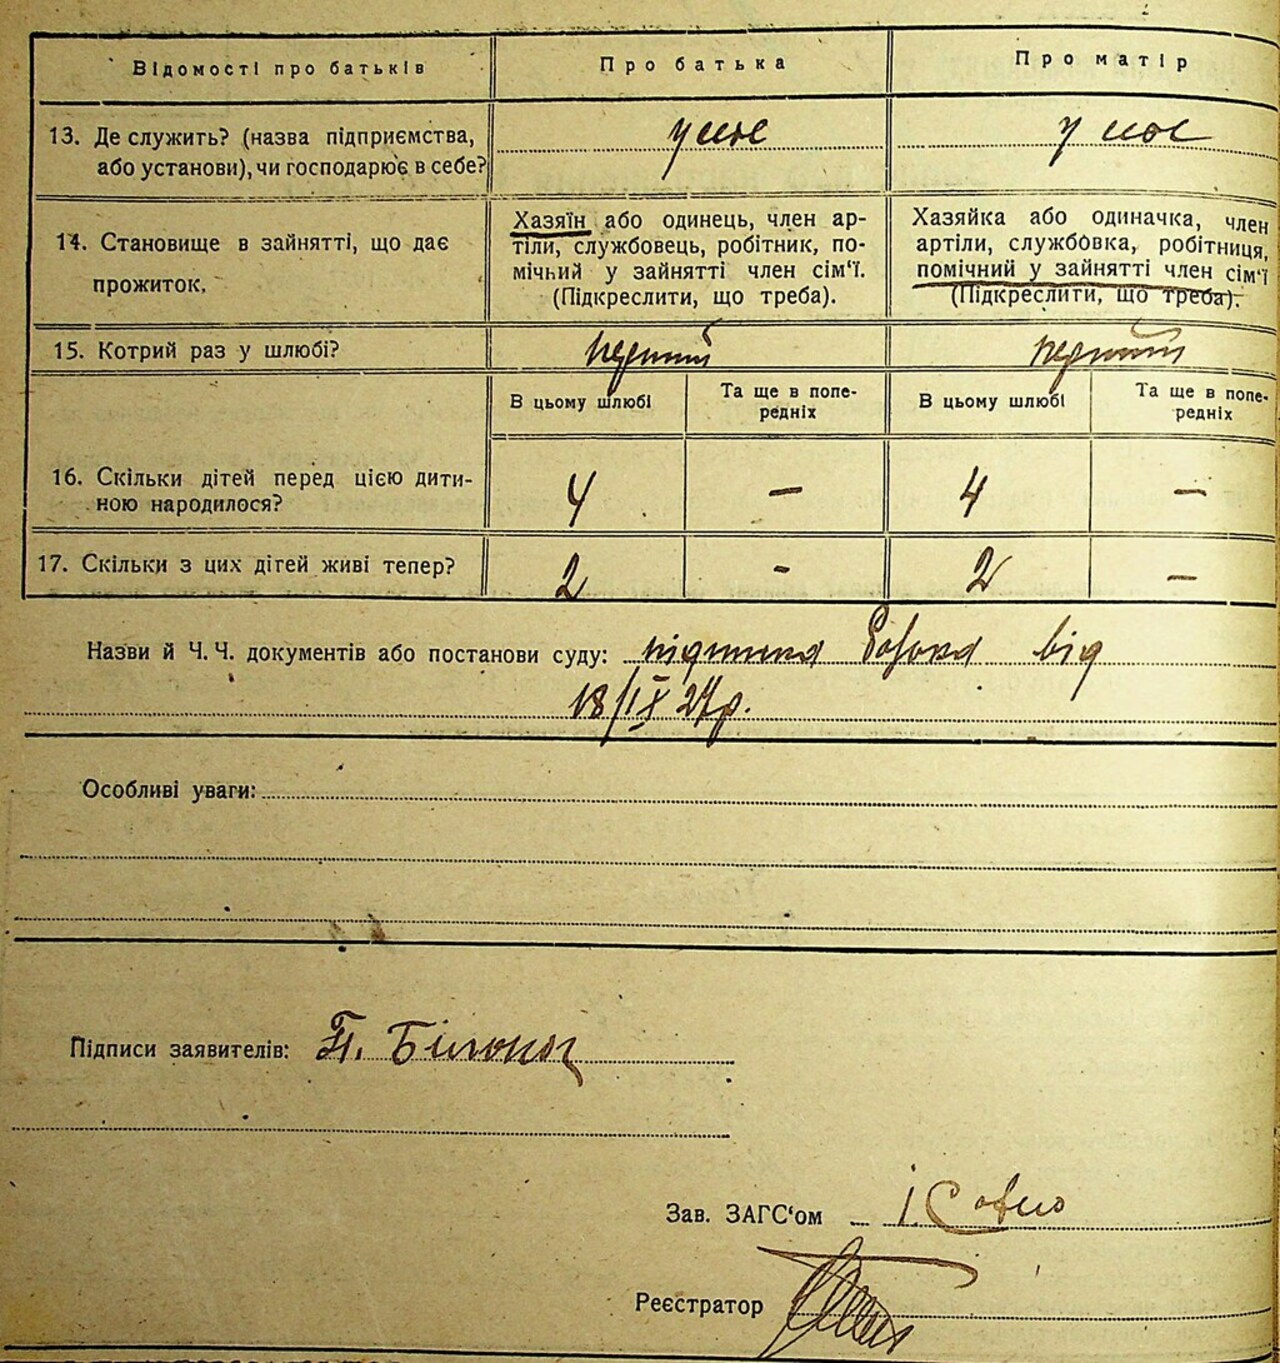 Відомості про батьків
Про батька
Про матір
13. Де служить? (назва підприємства,
або установи), чи господарює в себе?
14. Становище в зайнятті, що дає
прожиток.
Хазяїн або одинець, член ар-
тіли, службовець, робітник, по-
мічний у зайнятті член сім'ї.
(Підкреслити, що треба).
Хазяйка або одиначка, член
артіли, службовка, робітниця,
помічний у зайнятті член сім'ї
(Підкреслити, що треба).
15. Котрий раз у шлюбі?
перший
перший
В цьому шлюбі
Та ще в попе-
редніх
В цьому шлюбі
Та ще в попе-
редніх
16. Скільки дітей перед цією дити-
ною народилося?
4
–
4
–
17. Скільки з цих дітей живі тепер?
2
-
2
–
Назви й Ч. Ч. документів або постанови суду: від
18/IX 27р.
Особливі уваги:
Підписи заявителів: П. Білоног
Зав. ЗАГС'ом І.
Реєстратор